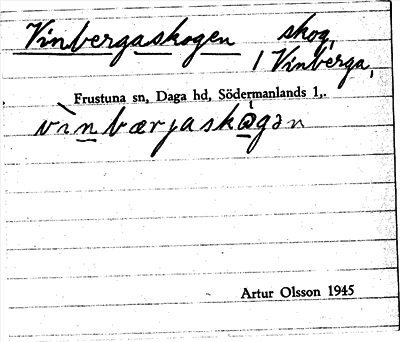 Vinbergaskogen skog,
i Vinberga,
Frustuna sn, Daga hd, Södermanlands l,.
vìnbærjaskògən
Artur Olsson 1945